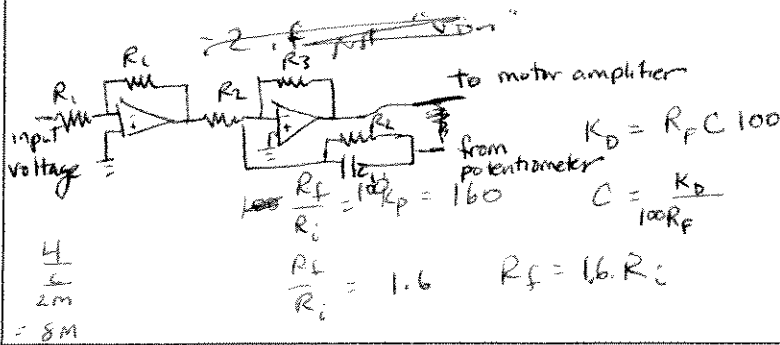 R₁
R₃
R₁
R₂
to motor amplifier
input
voltage
R₂
from
potentiometer
K_D = R_F C 100
R_f / R_i = 100 K_p = 160
C = K_D / 100R_F
R_f / R_i = 1.6
R_f = 1.6 R_i
4
2M
= 8M